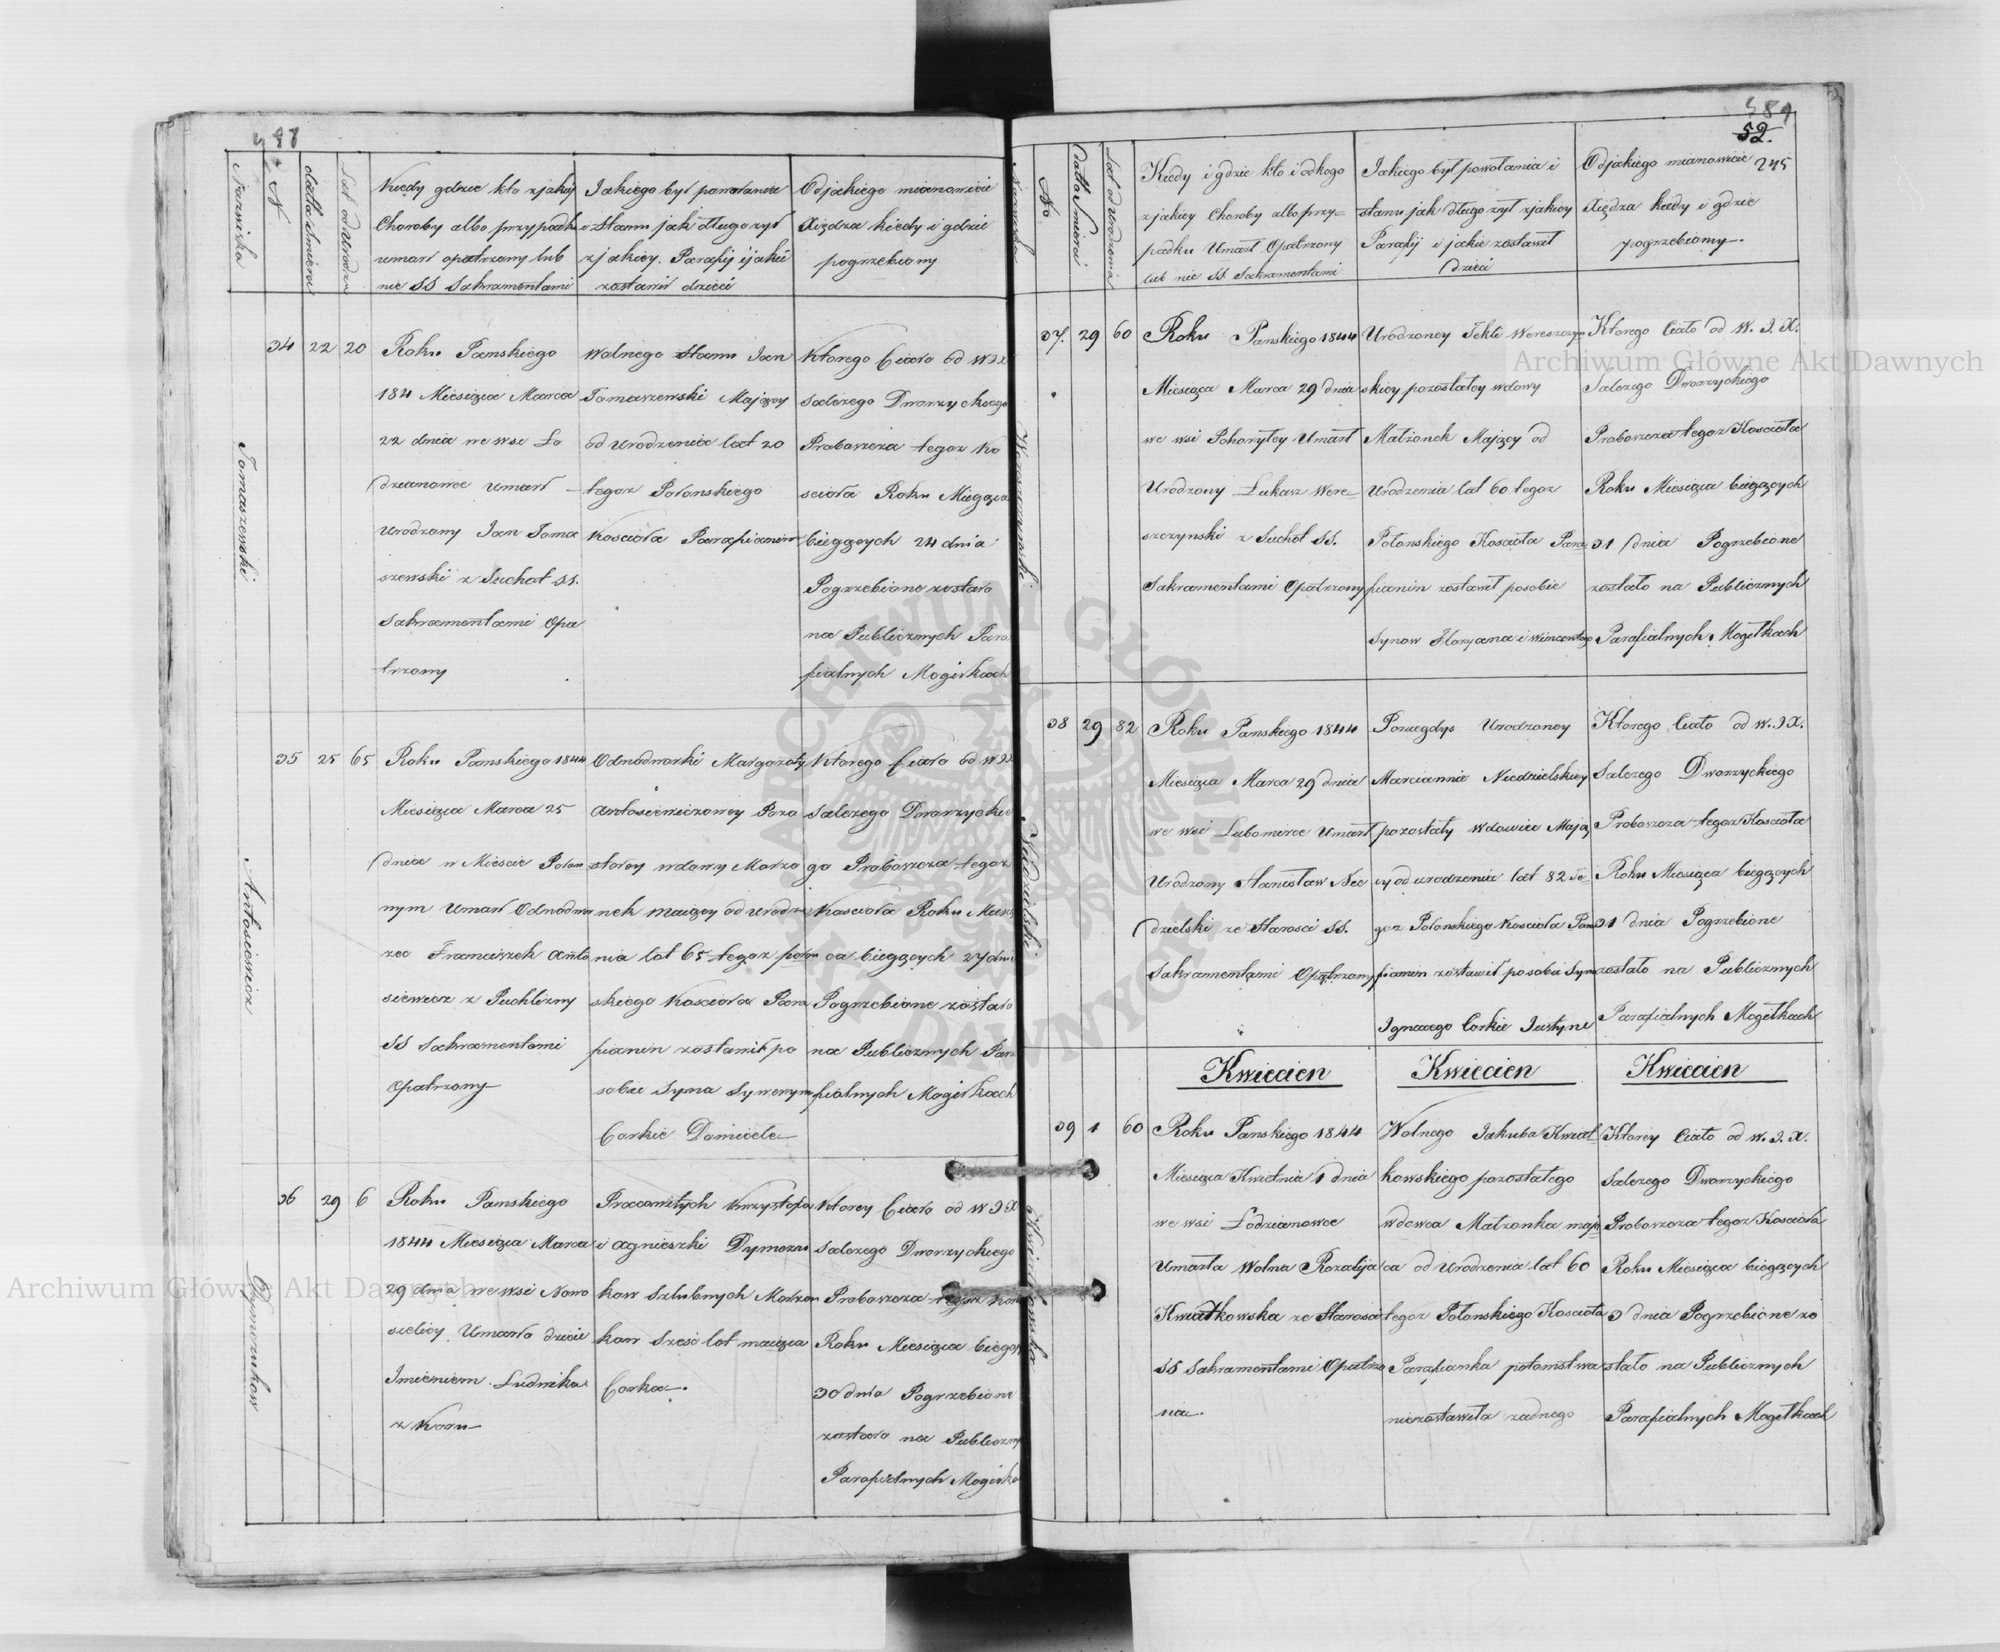 Nazwiska
N
Datta Smierci
Lat od Urodzen
Kiedy gdzie kto zjakiej
Choroby albo przypadk
umarł opatrzony lub
nie SS Sakramentami
Jakiego był powołania
i Stanu jak długo żył
zjakiey Parafij i jakie
zostawił dzieci
Odjakiego mianowicie
Xiędza kiedy i gdzie
pogrzebiony
Tomaszewski
34 22 20
Roku Panskiego
184 Miesiąca Marca
22 dnia we wsi Ło
dzianowce umarł
Urodzony Jan Toma
szewski z Suchot SS.
Sakramentami Opa
trzony
Wolnego Stanu Jan
Tomaszewski Mający
od Urodzenia lat 20
tegoz Połonskiego
Kościoła Parafianin
Ktorego Ciało od W J X
Salezego Dworzyckiego
Proboszcza tegoz Ko
scioła Roku Miesiąca
bieżących 24 dnia
Pogrzebione zostało
na Publicznych Para
fialnych Mogiłkach
Antosiewicz
35 25 65
Roku Panskiego 1844
Miesiąca Marca 25
dnia w Miescie Połon
nym Umarł Odnodwo
rzec Franciszek Anto
siewicz z Puchliny
SS Sakramentami
Opatrzony
Odnodworki Margorzaty
Antosiewiczowey Pozo
stałey wdowy Małzo
nek maiący od Urodze
nia lat 65 tegoz połon
skiego Kościoła Para
fianin zostawił po
sobie Syna Syweryna
Corkie Domicele
Ktorego Ciało od W J X
Salezego Dworzyckie
go Proboszcza tegoz
Kościoła Roku Miesią
ca bieżących 27 dnia
Pogrzebione zostało
na Publicznych Para
fialnych Mogiłkach
Dymczukow
36 29 6
Roku Panskiego
1844 Miesiąca Marca
29 dnia we wsi Nowo
sielicy Umarło dziecie
Imieniem Ludwika
z Koru
Pracowitych Krzysztofa
i Agnieszki Dymczu
kow Szlubnych Małzon
kow Szesć lat maiąca
Corka
Ktorey Ciało od W J X
Salezego Dworzyckiego
Proboszcza tegoz Kos
Roku Miesiąca bieżą
30 dnia Pogrzebione
zostało na Publiczny
Parafialnych Mogiłka
52.
245
No
Datta Smierci
Lat od Urodzenia
Kiedy i gdzie kto i odkogo
zjakiey Choroby albo przy=
padku Umarł Opatrzony
lub nie SS. Sakramentami
Jakiego był powołania i
stanu jak długo zył zjakiey
Parafij i jakie zostawił
dzieci
Odjakiego mianowicie
Xiędza kiedy i gdzie
pogrzebiony.
37. 29 60
Roku Panskiego 1844
Miesiąca Marca 29 dnia
we wsi Pohoryłey Umarł
Urodzony Łukasz Were=
szczynski z Suchot SS.
Sakramentami Opatrzony
Urodzoney Tekli Wereszczyn
skiey pozostałey wdowy
Małżonek Mający od
Urodzenia lat 60 tegoz
Połonskiego Kościoła Para
fianin zostawił posobie
Synow Floryana i Wincentego
Ktorego Ciało od W. J. X.
Salezego Dworzyckiego
Proboszcza tegoz Kościoła
Roku Miesiąca bieżących
31 dnia Pogrzebione
zostało na Publicznych
Parafialnych Mogiłkach
Niedzielski
38 29 82
Roku Panskiego 1844
Miesiąca Marca 29 dnia
we wsi Lubomirce Umarł
Urodzony Stanisław Nie
dzielski ze Starosci SS.
Sakramentami Opatrzony
Poniegdys Urodzoney
Marciannie Niedzielskiey
pozostały Wdowiec Mają
cy od urodzenia lat 82 Te=
goz Połonskiego Kościoła Para
fianin zostawił posobie Syna
Ignacego Corkie Justyne
Ktorego Ciało od W. J. X.
Salezego Dworzyckiego
Proboszcza tegoz Kościoła
Roku Miesiąca bieżących
31 dnia Pogrzebione
zostało na Publicznych
Parafialnych Mogiłkach
Kwiecien Kwiecien Kwiecien
Kwiatkowska
39 1 60
Roku Panskiego 1844
Miesiąca Kwietnia 1 dnia
we wsi Łodzianowce
Umarła Wolna Rozalija
Kwiatkowska ze Starosci
SS Sakramentami Opatrzo
na.
Wolnego Jakuba Kwiat=
kowskiego pozostałego
wdowca Małżonka mają
ca od Urodzenia lat 60
tegoz Połonskiego Kościoła
Parafianka potomstwa
niezostawiła zadnego
Ktorey Ciało od W. J. X.
Salezego Dworzyckiego
Proboszcza tegoz Kościoła
Roku Miesiąca bieżących
3 dnia Pogrzebione zo
stało na Publicznych
Parafialnych Mogiłkach
Archiwum Główne Akt Dawnych
Archiwum Główne Akt Dawnych
ARCHIWUM GŁÓWNE AKT DAWNYCH